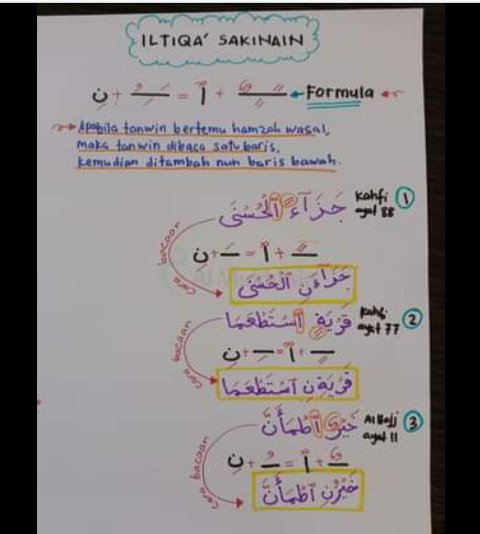 ILTIQA' SAKINAIN
ـًـٍـٌ + ٱ = ـَـِـُ + نِ Formula
Apabila tanwin bertemu hamzah wasal,
maka tanwin dibaca satu baris,
kemudian ditambah nun baris bawah.
جَزَآءً ٱلْحُسْنَى Kahfi ayat 88 1
ـً + ٱ = ـَ + نِ
cara bacaan
جَزَآءَنِ ٱلْحُسْنَى
قَرْيَةٍ ٱسْتَطْعَمَا Kahfi ayat 77 2
ـٍ + ٱ = ـِ + نِ
cara bacaan
قَرْيَةِنِ ٱسْتَطْعَمَا
خَيْرٌ ٱطْمَأَنَّ Al Hajj ayat 11 3
ـٌ + ٱ = ـُ + نِ
cara bacaan
خَيْرُنِ ٱطْمَأَنَّ